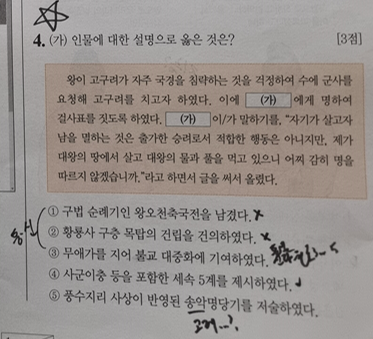 4. (가) 인물에 대한 설명으로 옳은 것은? [3점]
왕이 고구려가 자주 국경을 침략하는 것을 걱정하여 수에 군사를
요청해 고구려를 치고자 하였다. 이에 (가) 에게 명하여
걸사표를 짓도록 하였다. (가) 이/가 말하기를, "자기가 살고자
남을 멸하는 것은 출가한 승려로서 적합한 행동은 아니지만, 제가
대왕의 땅에서 살고 대왕의 물과 풀을 먹고 있으니 어찌 감히 명을
따르지 않겠습니까."라고 하면서 글을 써서 올렸다.
① 구법 순례기인 왕오천축국전을 남겼다. x
② 황룡사 구층 목탑의 건립을 건의하였다. x
③ 무애가를 지어 불교 대중화에 기여하였다.
④ 사군이충 등을 포함한 세속 5계를 제시하였다.
⑤ 풍수지리 사상이 반영된 송악명당기를 저술하였다.